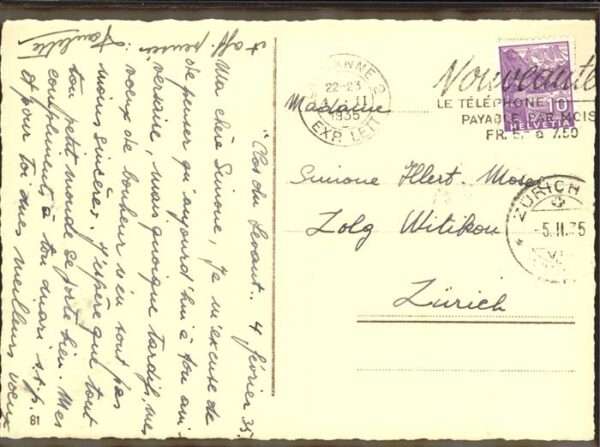 "Clos du Levant". 4 février 35.
Ma chère Simone, Je m'excuse de
ne penser qu'aujourd'hui à ton anni
versaire, mais quoique tardifs, mes
voeux de bonheur n'en sont pas
moins sincères. J'espère que tout
ton petit monde se porte bien. Mes
compliments à ton mari s.t.p.
et pour toi mes meilleurs voeux
et aff. pensées.
81
22-23
1935
EXP. LETT
Nouveauté
LE TÉLÉPHONE
PAYABLE PAR MOIS
FR. 7.50
10
HELVETIA
Madame
Simone Illert-Moser
Zolg Witikon
Zürich
ZÜRICH
-5.II.35